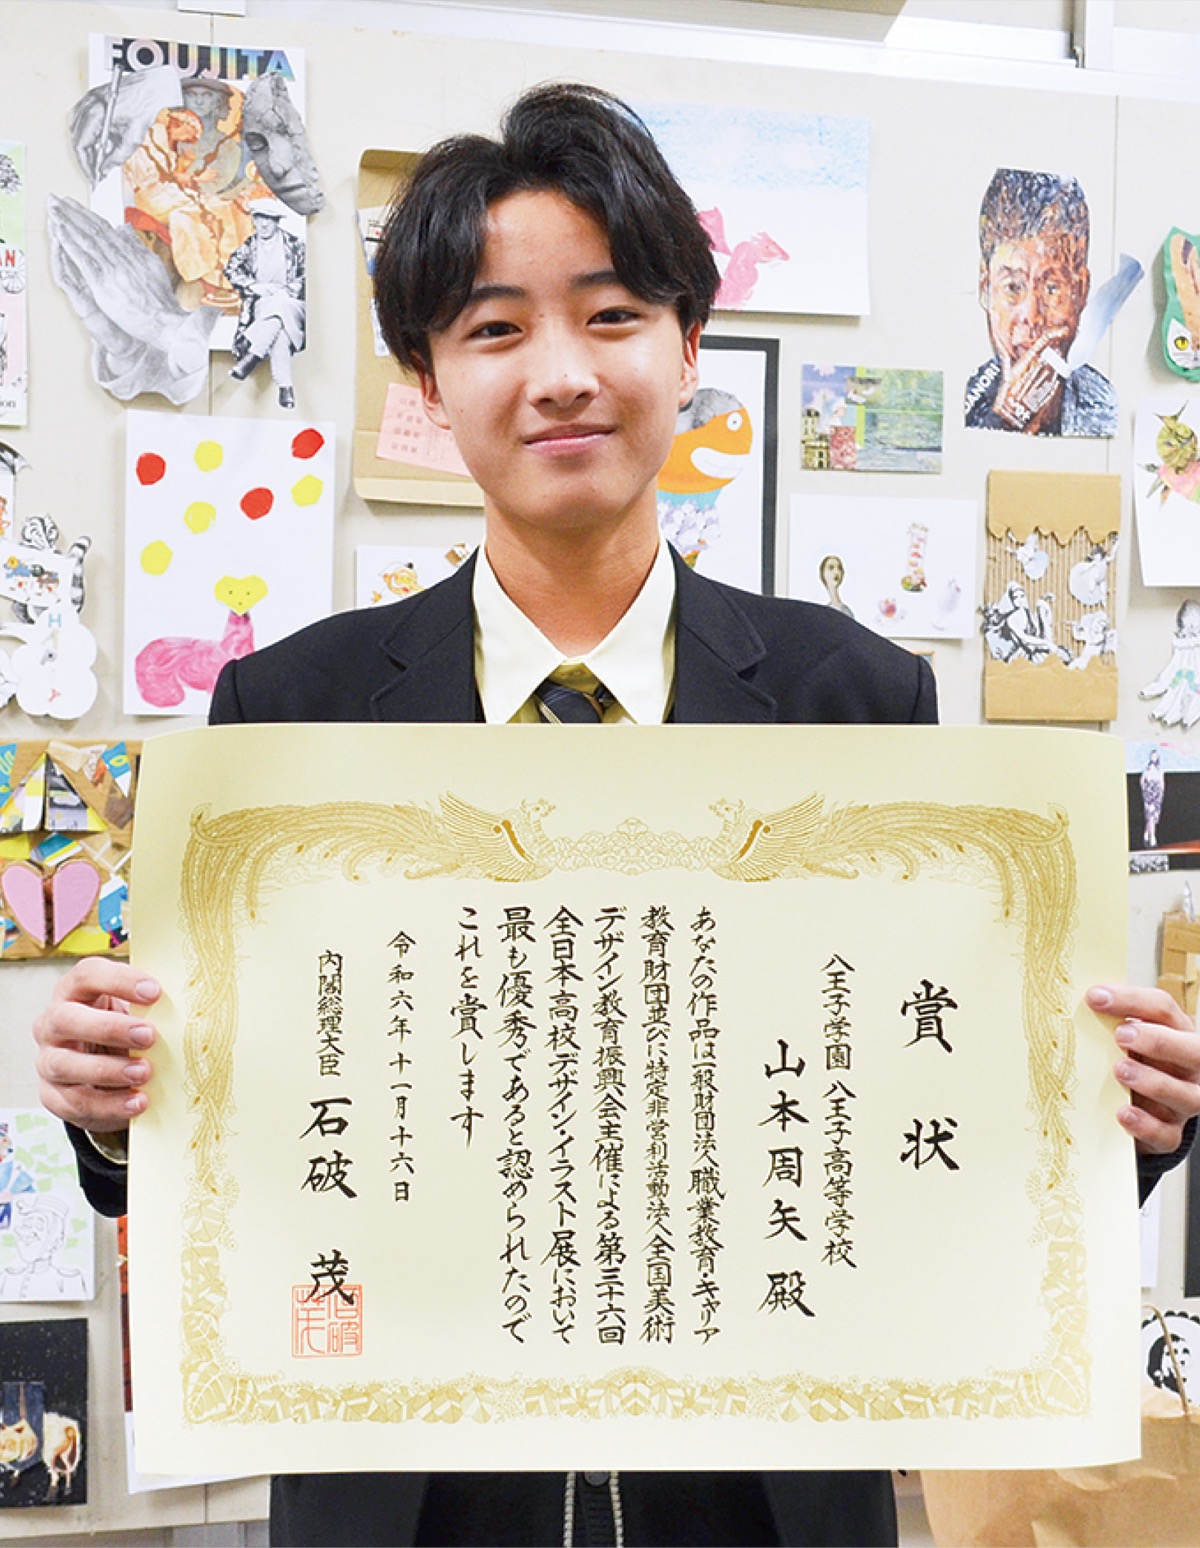 賞状
八王子学園 八王子高等学校
山本周矢 殿
あなたの作品は一般財団法人職業教育・キャリア
教育財団並びに特定非営利活動法人全国美術
デザイン教育振興会主催による第三十六回
全日本高校デザイン・イラスト展において
最も優秀であると認められたので
これを賞します
令和六年十一月十六日
内閣総理大臣 石破 茂
FOUJITA